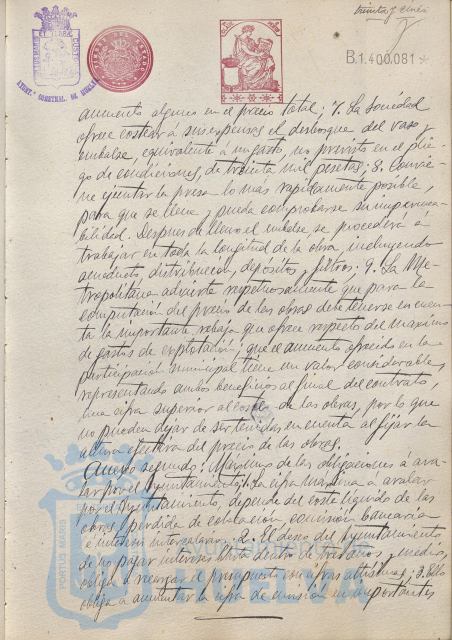 treinta y cinco
B.1.400.081*
AYUNT. CONSTNAL. DE HUELVA
aumento alguno en el precio total; 7. La Sociedad
ofrece costear á sus expensas el desbosque del vaso y
embalse, equivalente á un gasto, no previsto en el plie-
go de condiciones, de treinta mil pesetas; 8. Convie-
ne ejecutar la presa lo mas rapidamente posible,
para que se llene y pueda comprobarse su impermea-
bilidad. Despues de lleno el embalse se procederá á
trabajar en toda la longitud de la obra, incluyendo
acueducto, distribucion, depósitos y filtros; 9. La Me-
tropolitana advierte respetuosamente que para la
computación del precio de las obras debe tenerse en cuen-
ta la importante rebaja que ofrece respecto del maximo
de gastos de explotación; que el aumento ofrecido en la
participacion municipal tiene un valor considerable,
representando ambos beneficios al final del contrato,
una cifra superior al costo de las obras, por lo que
no pueden dejar de ser tenidas en cuenta al fijar la
altura efectiva del precio de las obras.
Anexo segundo: Maximo de las obligaciones á ava-
lar por el Ayuntamiento; 1. La cifra maxima á avalar
por el Ayuntamiento, depende del coste liquido de las
obras, perdida de colocación, comisión bancaria
é intereses intercalares; 2. El deseo del Ayuntamiento
de no pagar intereses hasta dentro de tres años y medio,
obliga á recargar el presupuesto con cifras altisimas; 3. Ello
obliga á aumentar la cifra de emisión en importantes
PORTUS MARIS
HUELVA